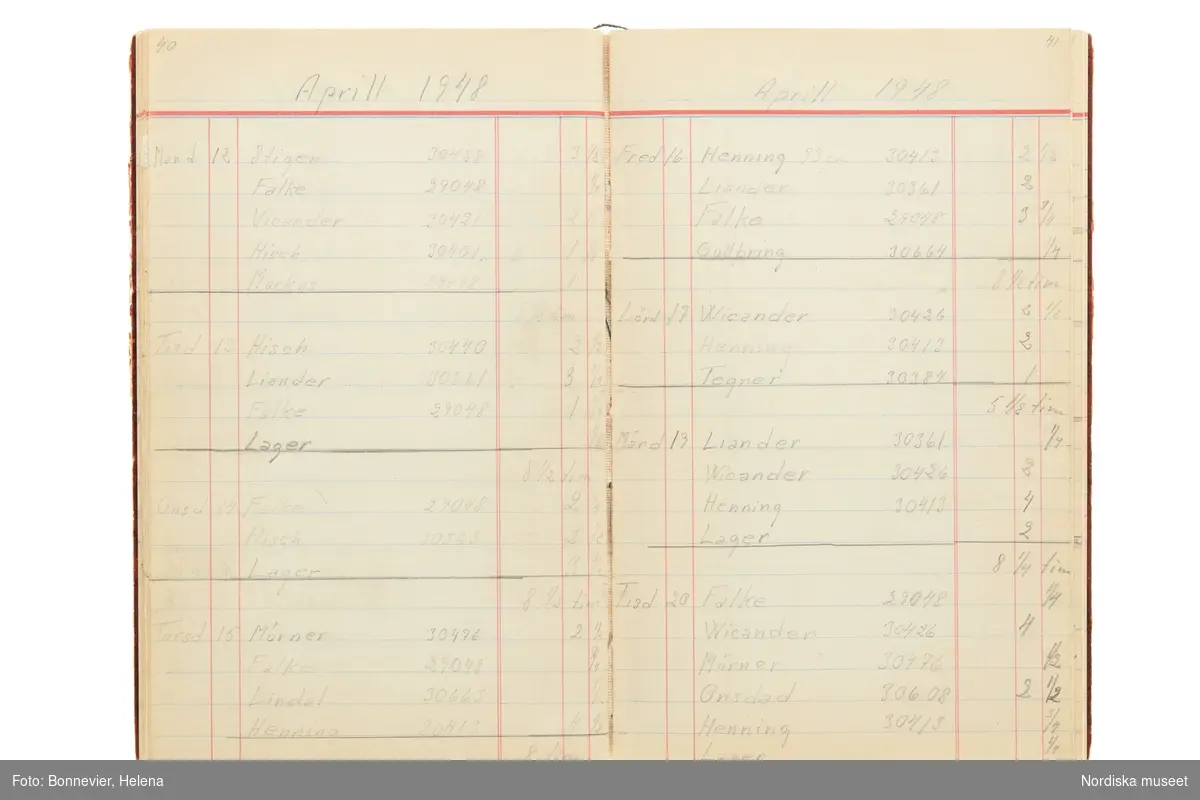 40
Aprill 1948
Mand 12 Stigen 30458 3 1/2
Falke 29048
Vicander 30421 2
Hisch 1
Markus 1
Tisd 13 Hisch 30470 2 1/2
Liander 30361 3 1/2
Falke 29048 1
Lager
8 1/2 tim
Onsd 14 Falke 29048 2
Hisch
Lager
8 1/2 tim
Torsd 15 Mörner 30476 2 1/2
Falke 29048
Lindal 30663
Henning 30413 4
8 tim
41
Aprill 1948
Fred 16 Henning 30413 2 1/2
Liander 30361 2
Falke 29048 3 3/4
Gullbring 30664 1/4
8 1/2 tim
Lörd 17 Wicander 30426 2 1/2
Henning 30413 2
Tegner 30384 1
5 1/2 tim
Månd 19 Liander 30361 1/4
Wicander 30426 2
Henning 30413 4
Lager 2
8 1/4 tim
Tisd 20 Falke 29048 1/4
Wicander 30426 4
Mörner 30476 1/2
Onsdad 30608 2 1/2
Henning 30413 3/4
Lager
Foto: Bonnevier, Helena
Nordiska museet